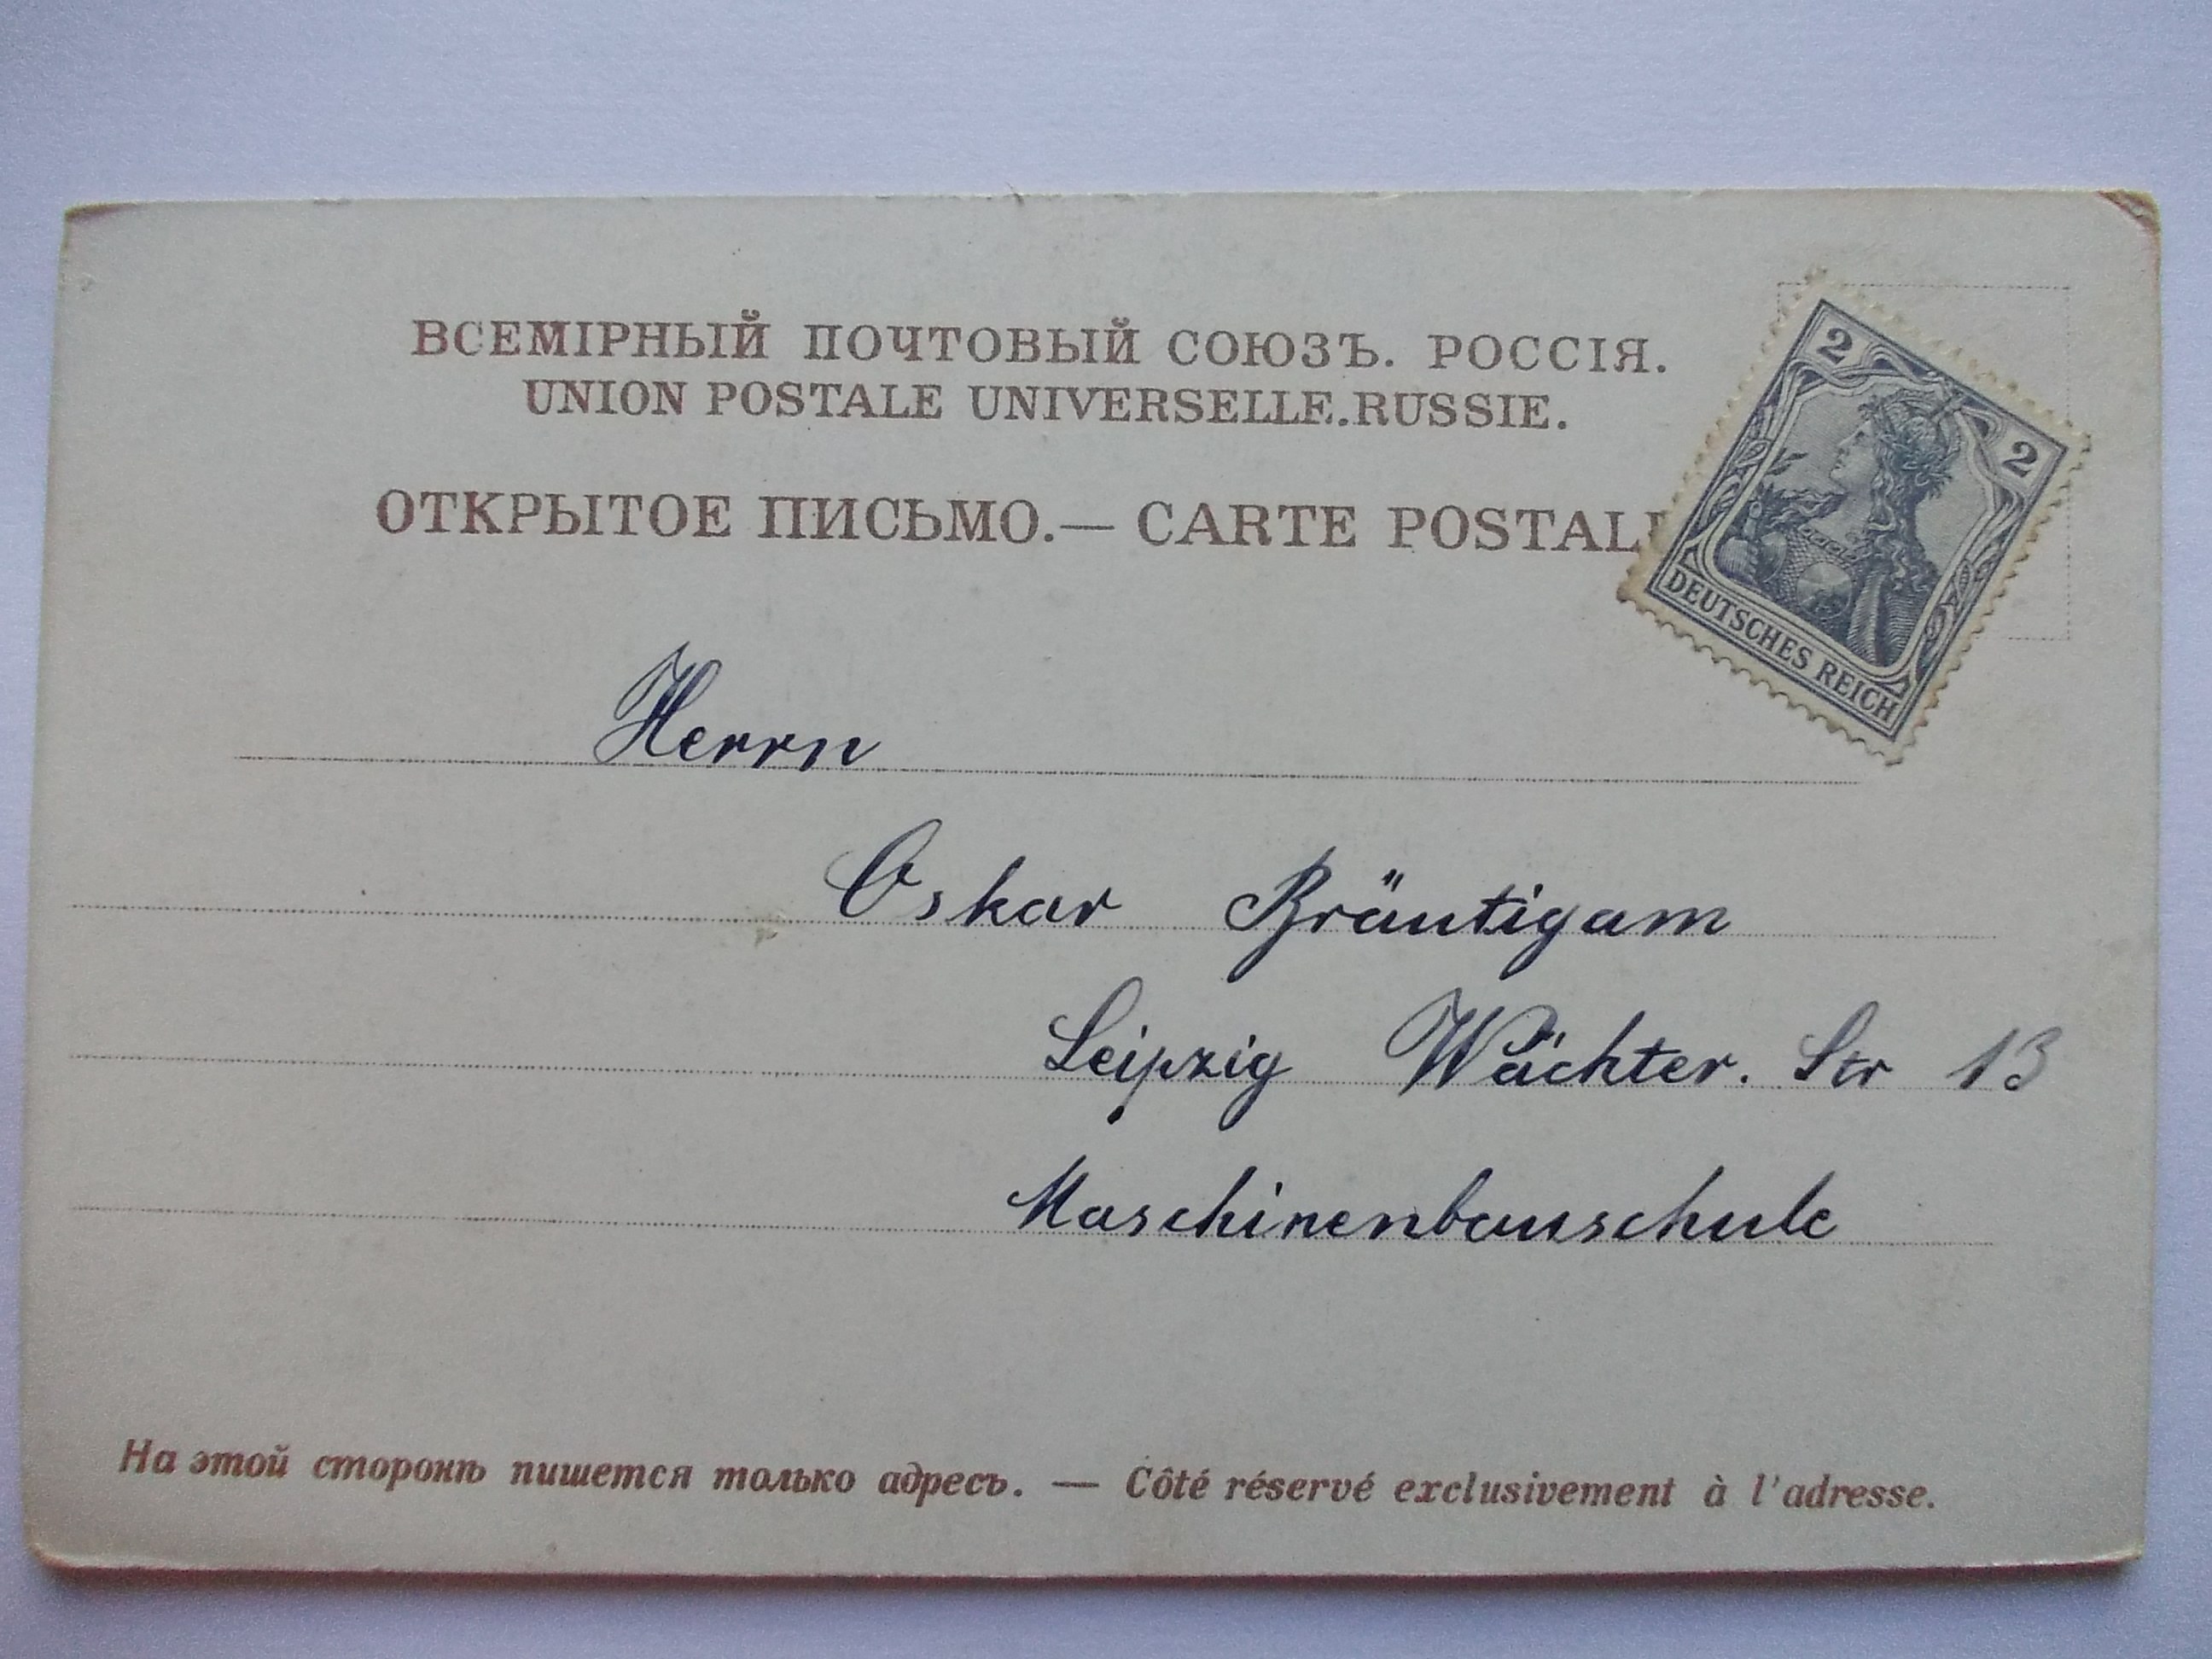 ВСЕМІРНЫЙ ПОЧТОВЫЙ СОЮЗЪ. РОССІЯ.
UNION POSTALE UNIVERSELLE. RUSSIE.
ОТКРЫТОЕ ПИСЬМО. — CARTE POSTALE
2 2
DEUTSCHES REICH
Herrn
Oskar Bräutigam
Leipzig Wächter. Str 13
Maschinenbauschule
На этой сторонѣ пишется только адресъ. — Côté réservé exclusivement à l'adresse.